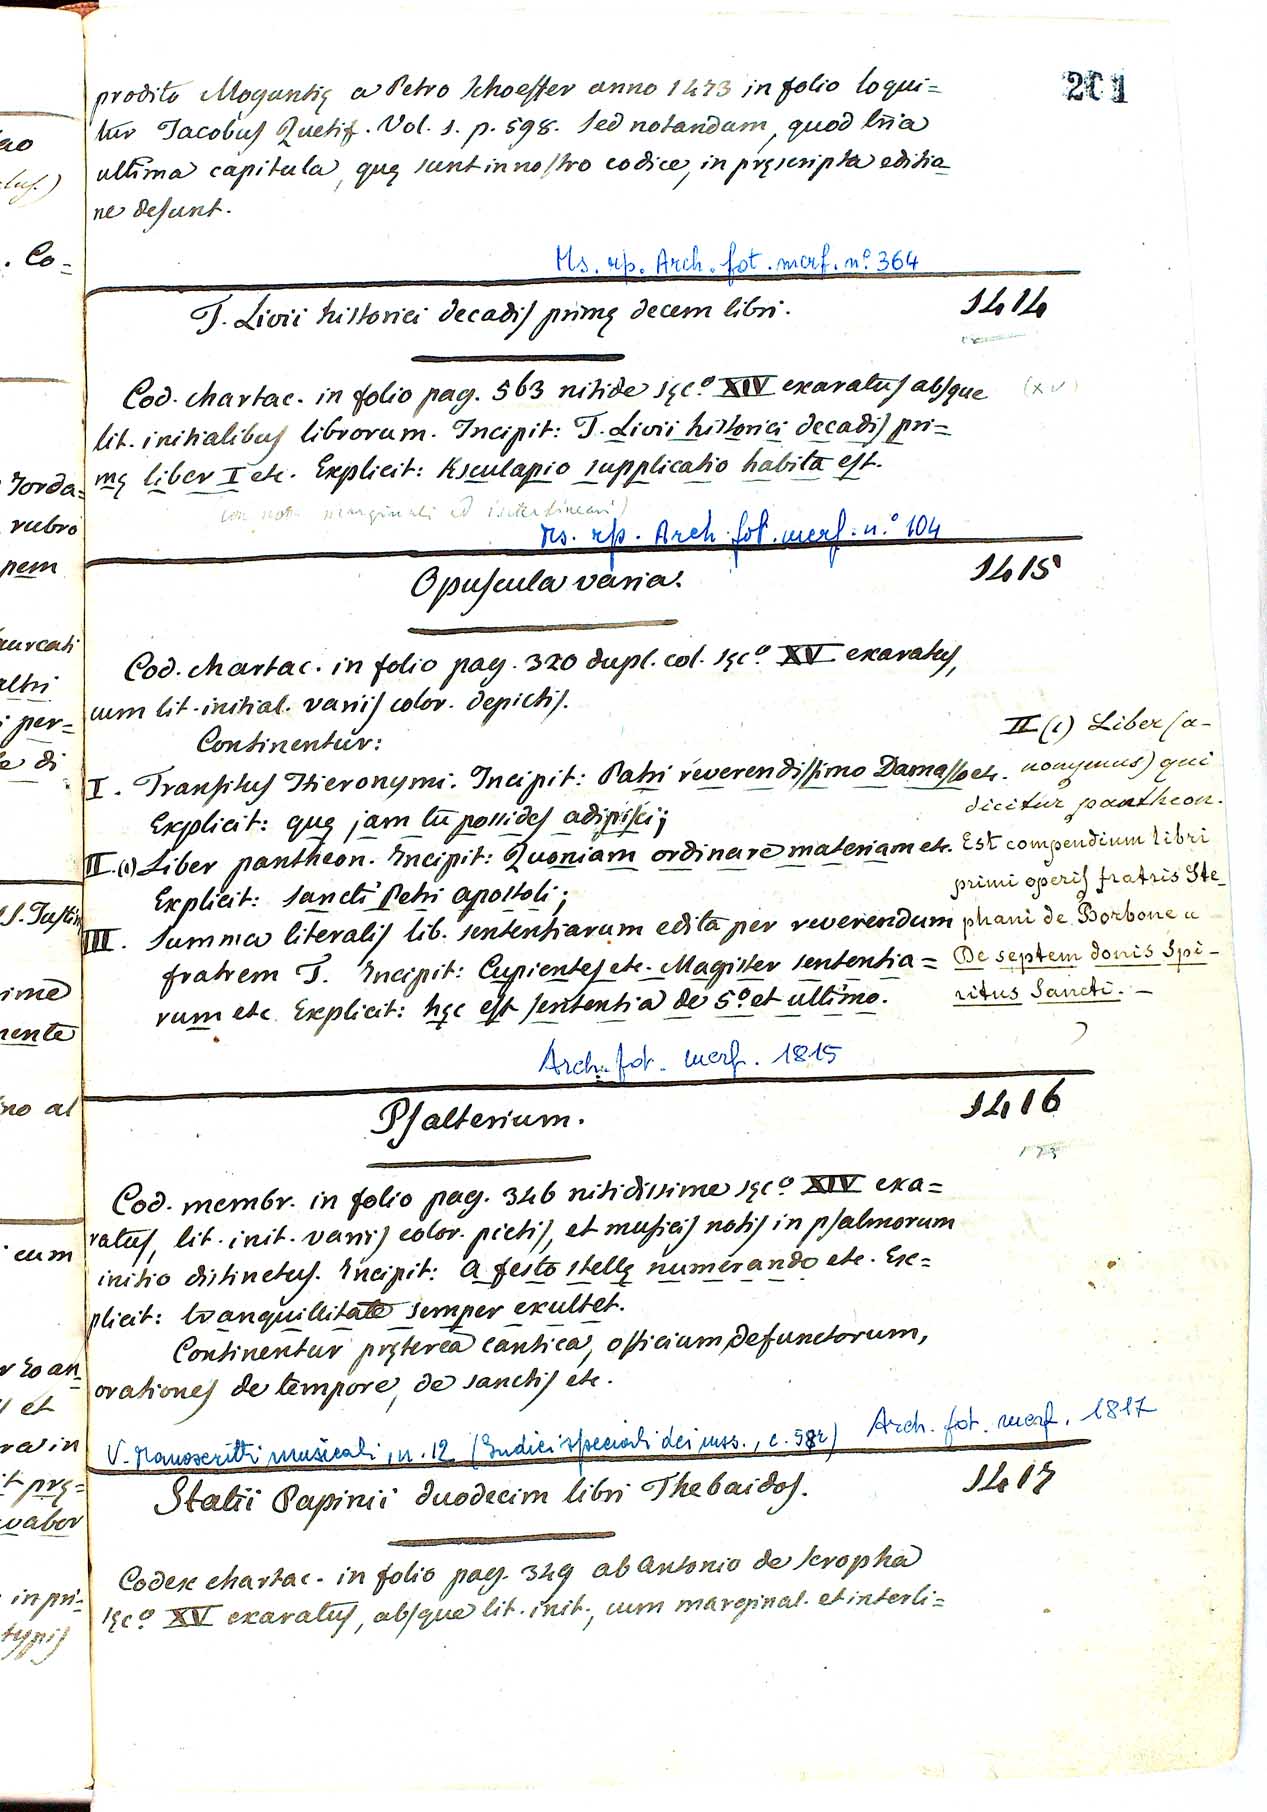 201
prodito Moguntię a Petro Schoeffer anno 1473 in folio loqui=
tur Jacobus Quetif. Vol. 1. p. 598. Sed notandum, quod
ultima capitula, quę sunt in nostro codice, in pręscripta editio=
ne desunt.
Ms. rp. Arch. fot. merf. n.º 364
T. Livii historici decadis primę decem libri.
1414
Cod. chartac. in folio pag. 563 nitide sęc.º XIV exaratus absque
(XV)
lit. initialibus librorum. Incipit: T. Livii historici decadis pri=
mę liber I etc. Explicit: Esculapio supplicatio habita est.
con note marginali ed interlineari)
Ms. rp. Arch. fot. merf. n.º 104
Opuscula varia.
1415
Cod. chartac. in folio pag. 320 dupl. col. sęc.º XV exaratus,
cum lit. initial. variis color. depictis.
Continentur:
I. Transitus Hieronymi. Incipit: Patri reverendissimo Damaso etc.
Explicit: quę jam tu possides adipisci;
II.(1) Liber pantheon. Incipit: Quoniam ordinare materiam etc.
Explicit: sancti Petri apostoli;
III. Summa literalis lib. sententiarum edita per reverendum
fratrem T. Incipit: Cupientes etc. Magister sententia=
rum etc. Explicit: hęc est sententia de 5.º et ultimo.
II (1) Liber (a-
nonymus) qui
dicitur pantheon.
Est compendium libri
primi operis fratris Ste-
phani de Borbone
De septem donis Spi-
ritus Sancti. —
Arch. fot. merf. 1815
Psalterium.
1416
Cod. membr. in folio pag. 346 nitidissime sęc.º XIV exa=
ratus, lit. init. variis color. pictis, et musicis notis in psalmorum
initio distinctus. Incipit: A festo stellę numerando etc. Ex=
plicit: tranquillitate semper exultet.
Continentur pręterea cantica, officium defunctorum,
orationes de tempore, de sanctis etc.
V. Manoscritti musicali, n. 12 (Indici speciali dei mss., c. 58r)
Arch. fot. merf. 1817
Statii Papinii duodecim libri Thebaidos.
1417
Codex chartac. in folio pag. 349 ab Antonio de Scropha
sęc.º XV exaratus, absque lit. init., cum marginal. et interli=